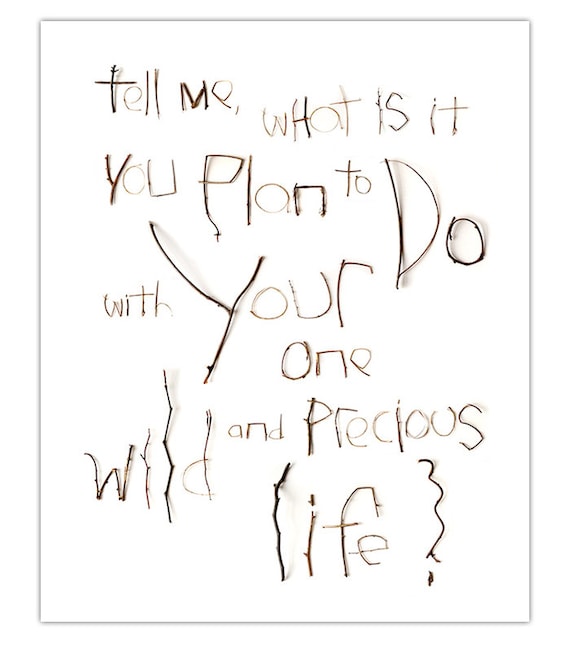 tell me, what is it
you Plan to Do
with Your
one
wild and Precious
life?